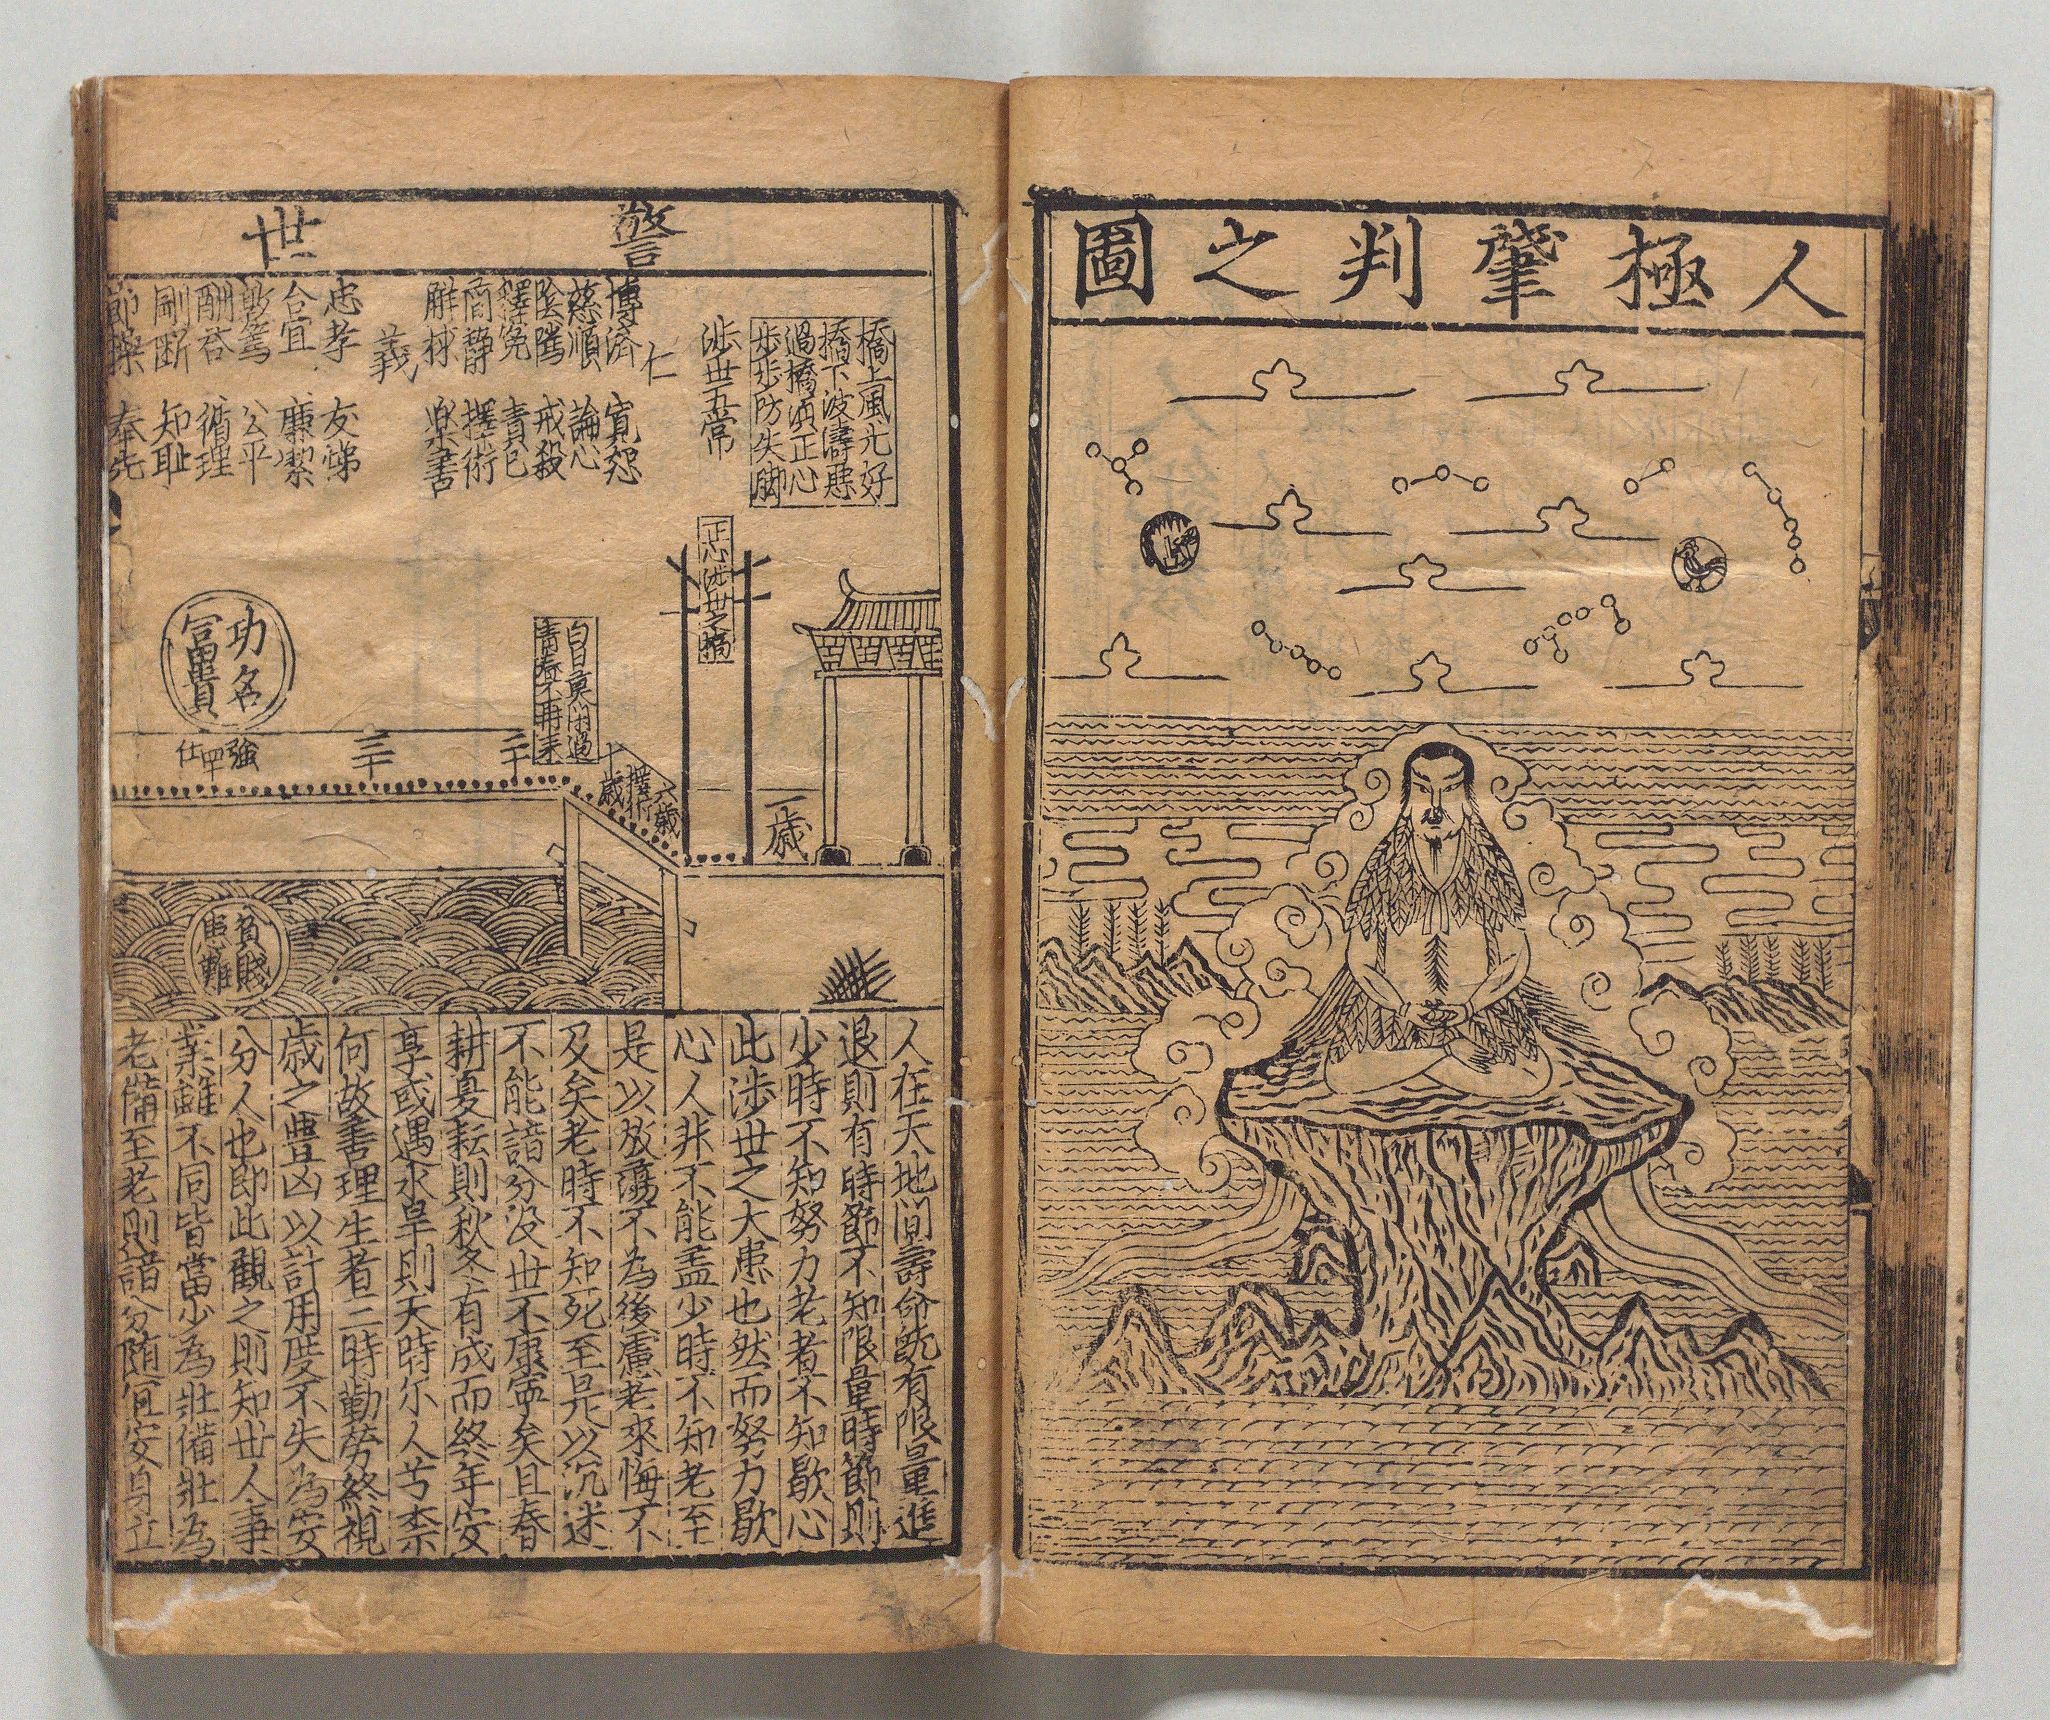 人極肇判之圖
警世
橋上風光好
橋下波濤惡
過橋須正心
步步防失脚
涉世五常
仁
博濟 寬恕
慈順 論心
陰騭 戒殺
釋冤 責己
簡靜 擇術
解棼 樂書
義
忠孝 友悌
合宜 廉潔
敦篤 公平
酬荅 循理
剛斷 知耻
節操 奉先
正心涉世之橋
白日莫閑過
青春不再来
一歲
六歲
十歲
二十
三十
強
四
仕
功名
富貴
貧賤
患難
人在天地間壽命旣有限量進
退則有時節不知限量時節則
少時不知努力老者不知歇心
此涉世之大患也然而努力歇
心人非不能盖少時不知老至
是以放蕩不為後慮老來悔不
及矣老時不知死至是以沉迷
不能諳分没世不康寕矣且春
耕夏耘則秋冬有成而終年安
享或遇水旱則天時尔人兮柰
何故善理生者三時勤勞終視
歲之豊凶以計用度不失為安
分人也即此觀之則知世人事
業雖不同皆當少為壯備壯為
老備至老則諳分随宜安身立